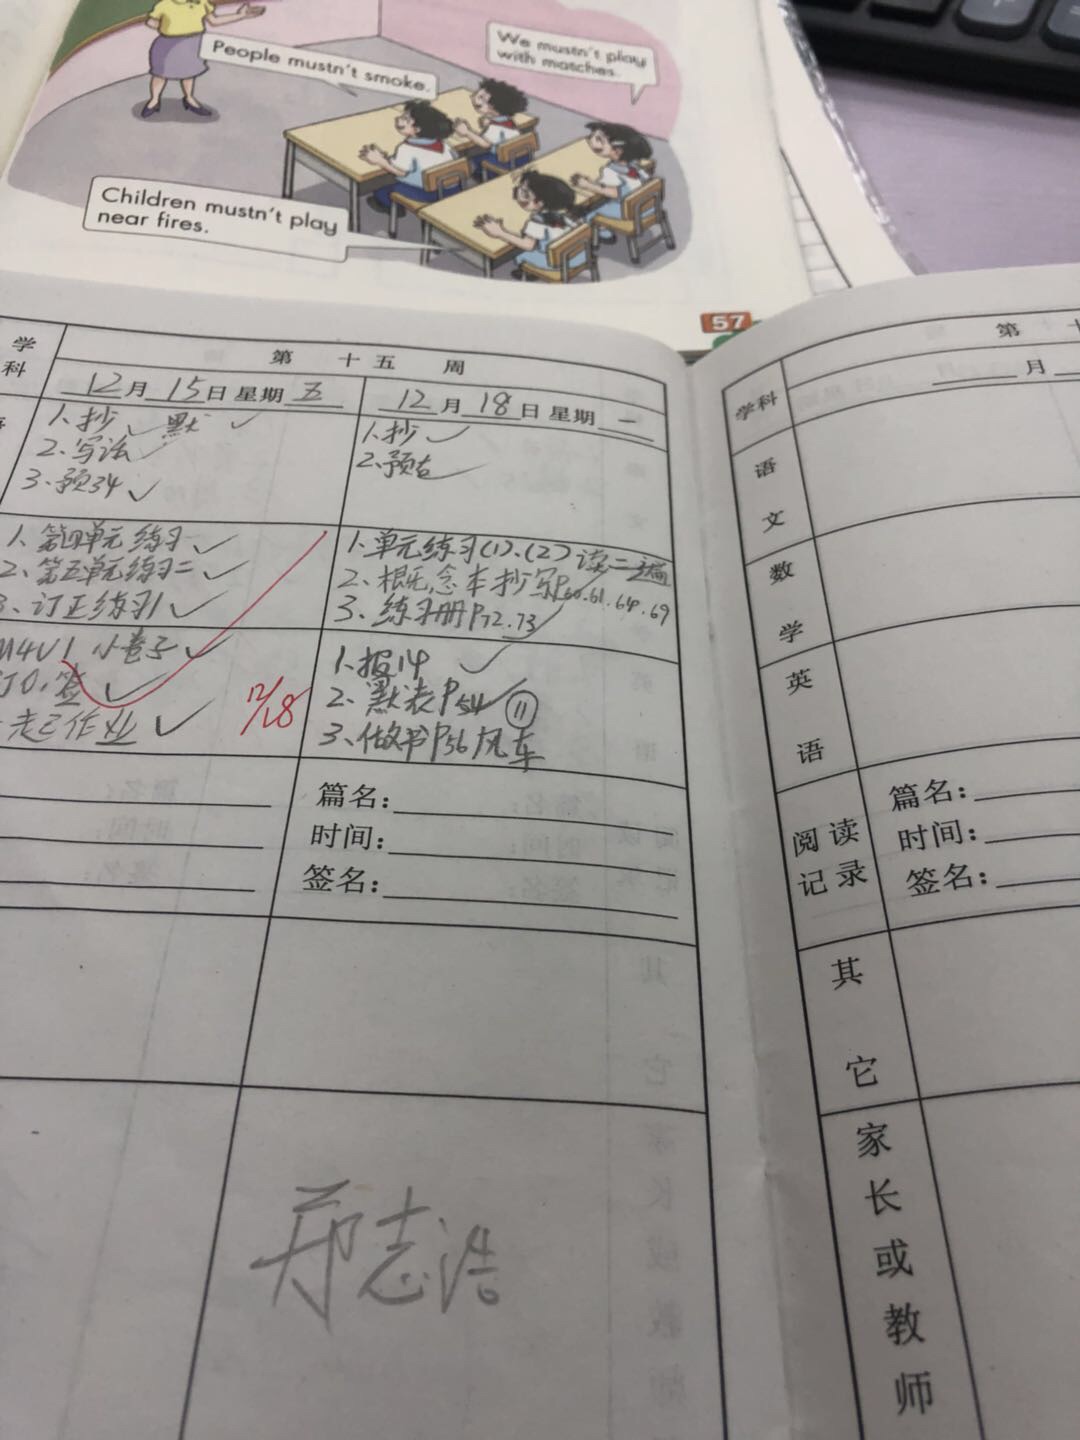 People mustn't smoke.
We mustn't play
with matches.
Children mustn't play
near fires.
57
学
科
第 十 五 周
12月15日 星期 五
12月18日 星期 一
1.抄✓ 默✓
2.写话✓
3.预34✓
1.抄✓
2.预古✓
1、第四单元练习✓
2、第五单元练习二✓
3、订正练习1✓
1.单元练习(1)、(2)读二遍
2、概念本抄写P60.61.64.69
3、练习册P72.73
M4U1 小卷子✓
签✓
作业✓
12/18
1.报14 ✓
2、默表P54 ⑪
3、做书P56风车
篇名:
时间:
签名:
郑志浩
第
月
学科
语
文
数
学
英
语
阅读
记录
篇名:
时间:
签名:
其
它
家
长
或
教
师